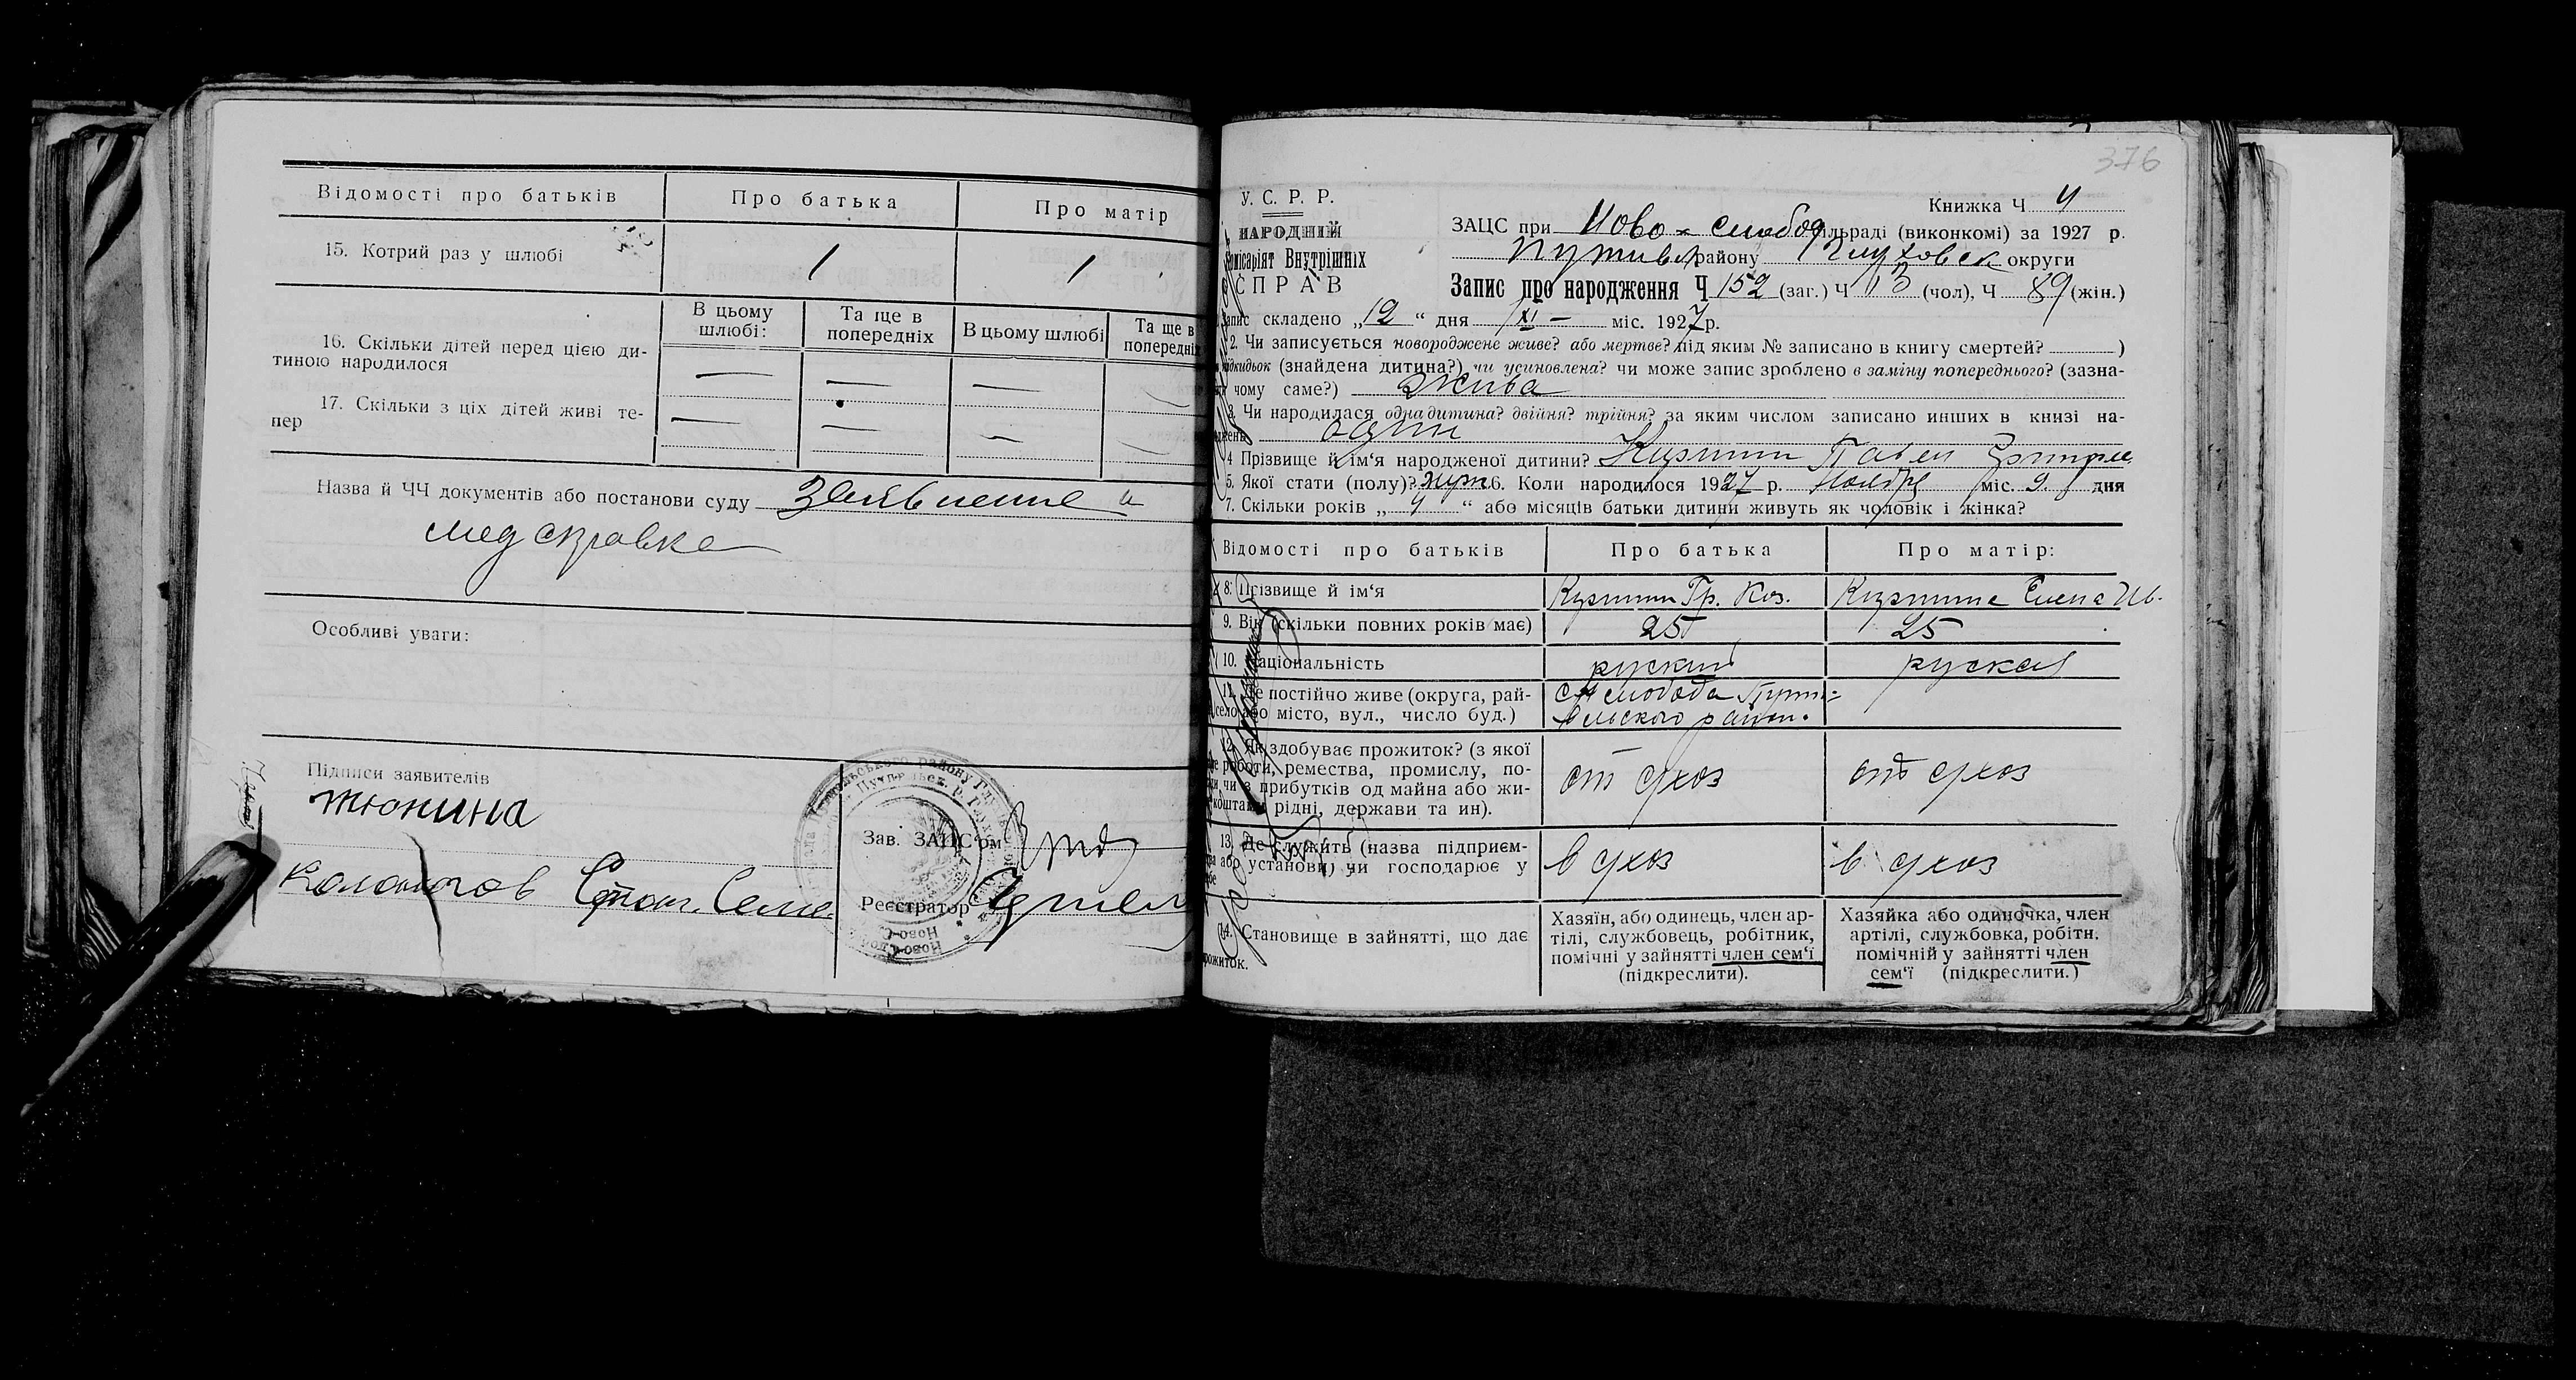 Відомості про батьків
Про батька
Про матір
15. Котрий раз у шлюбі
1
1
В цьому шлюбі:
Та ще в попередніх
В цьому шлюбі
Та ще в попередніх
16. Скільки дітей перед цією ди-
тиною народилося
17. Скільки з ціх дітей живі те-
пер
Назва й ЧЧ документів або постанови суду Заявление и
мед справка
Особливі уваги:
Підписи заявителів
тюнина
Зав. ЗАГС'ом
Реєстратор
376
У. С. Р. Р.
НАРОДНІЙ
Комісаріят Внутрішніх
СПРАВ
Книжка Ч 4
ЗАЦС при Ново-слобод сільраді (виконкомі) за 1927 р.
Путивл району Глуховск округи
Запис про народження Ч 152 (заг.) Ч (чол), Ч 89 (жін.)
Запис складено „12“ дня XI — міс. 1927 р.
2. Чи записується новороджене живе? або мертве? під яким № записано в книгу смертей? )
підкидьок (знайдена дитина?) чи усиновлена? чи може запис зроблено в заміну попереднього? (зазна-
чому саме?) жива
3. Чи народилася одна дитина? двійня? трійня? за яким числом записано инших в книзі на-
один
4 Прізвище й ім'я народженої дитини? Павел
5. Якої стати (полу)? 6. Коли народилося 1927 р. Ноября міс. 9. дня
7. Скільки років „4“ або місяців батьки дитини живуть як чоловік і жінка?
Відомості про батьків
Про батька
Про матір:
8. Прізвище й ім'я
Гр. Коз.
Елена Ив.
9. Вік (скільки повних років має)
25
25
10. Національність
руский
руская
11. Де постійно живе (округа, рай-
село або місто, вул., число буд.)
слобода Пути-
вльского район.
12. Як здобуває прожиток? (з якої
роботи, ремества, промислу, по-
чи з прибутків од майна або жи-
коштами рідні, держави та ин).
от с/хоз
от с/хоз
13. Де служить (назва підприєм-
або установи) чи господарює у
в с/хоз
в с/хоз
14. Становище в зайнятті, що дає
прожиток.
Хазяїн, або одинець, член ар-
тілі, службовець, робітник,
помічні у зайнятті член сем'ї
(підкреслити).
Хазяйка або одиночка, член
артілі, службовка, робітн.
помічній у зайнятті член
сем'ї (підкреслити.)